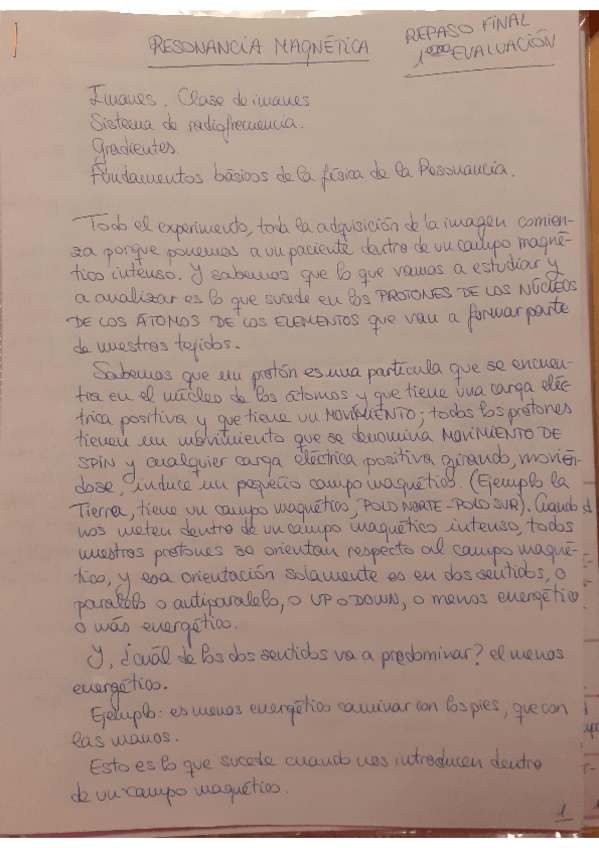 RESONANCIA MAGNÉTICA
REPASO FINAL
1era EVALUACIÓN
Imanes. Clase de imanes
Sistema de radiofrecuencia.
Gradientes.
Fundamentos básicos de la física de la Resonancia.
Todo el experimento, toda la adquisición de la imagen comien-
za porque ponemos a un paciente dentro de un campo magné-
tico intenso. Y sabemos que lo que vamos a estudiar y
a analizar es lo que sucede en los PROTONES DE LOS NÚCLEOS
DE LOS ÁTOMOS DE LOS ELEMENTOS que van a formar parte
de nuestros tejidos.
Sabemos que un protón es una partícula que se encuen-
tra en el núcleo de los átomos y que tiene una carga eléc-
trica positiva y que tiene un MOVIMIENTO; todos los protones
tienen un movimiento que se denomina MOVIMIENTO DE
SPIN y cualquier carga eléctrica positiva girando, movién-
dose, induce un pequeño campo magnético. (Ejemplo la
Tierra, tiene un campo magnético, POLO NORTE-POLO SUR). Cuando
nos meten dentro de un campo magnético intenso, todos
nuestros protones se orientan respecto al campo magné-
tico, y esa orientación solamente es en dos sentidos, o
paralelo o antiparalelo, o UP o DOWN, o menos energético
o más energético.
Y, ¿cuál de los dos sentidos va a predominar? el menos
energético.
Ejemplo: es menos energético caminar con los pies, que con
las manos.
Esto es lo que sucede cuando nos introducen dentro
de un campo magnético.
1